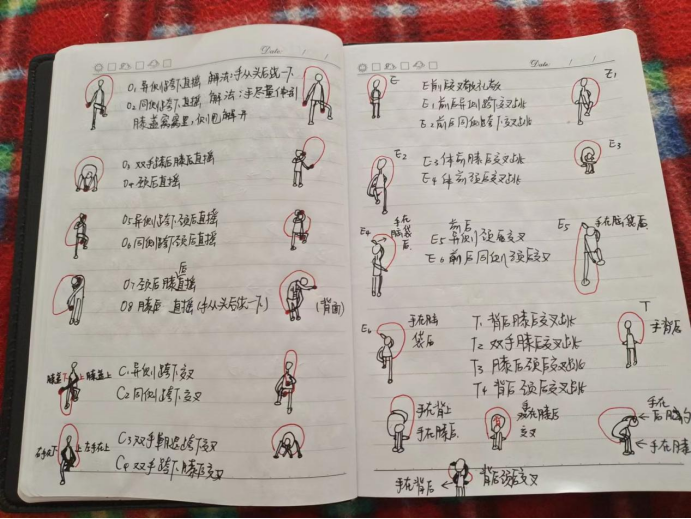 Date
O₁ 异侧胯下直摇 解法:手从头后绕一下
O₂ 同侧胯下直摇 解法:手尽量伸到
膝盖窝窝里,侧甩解开
O₃ 双手膝后直摇
O₄ 颈后直摇
O5 异侧胯下颈后直摇
O₆ 同侧胯下颈后直摇
O7 颈后膝后直摇
O8 膝后 直摇(手从头后绕一下)
(背面)
膝盖下 膝盖上
C₁ 异侧胯下交叉
C₂ 同侧胯下交叉
右手在下 左手在上
C₃ 双手单腿胯下交叉
C₄ 双手胯下膝后交叉
Date
E
E₁
E 前后交叉
E₁ 前后异侧胯下交叉跳
E₂ 前后同侧胯下交叉跳
E₂
E₃
E₃ 体前膝后交叉跳
E₄ 体前颈后交叉跳
E₄
手在脑袋后
前后
E₅ 异侧颈后交叉
E₆ 前后同侧颈后交叉
E₅
手在脑袋后
E₆
手在脑
袋后
T₁ 背后膝后交叉跳
T₂ 双手膝后交叉跳
T₃ 膝后颈后交叉跳
T₄ 背后颈后交叉跳
T
手背后
手在背上
手在膝后
手在膝后
交叉
手在
后脑勺
手在膝
手在背后
背后颈后交叉